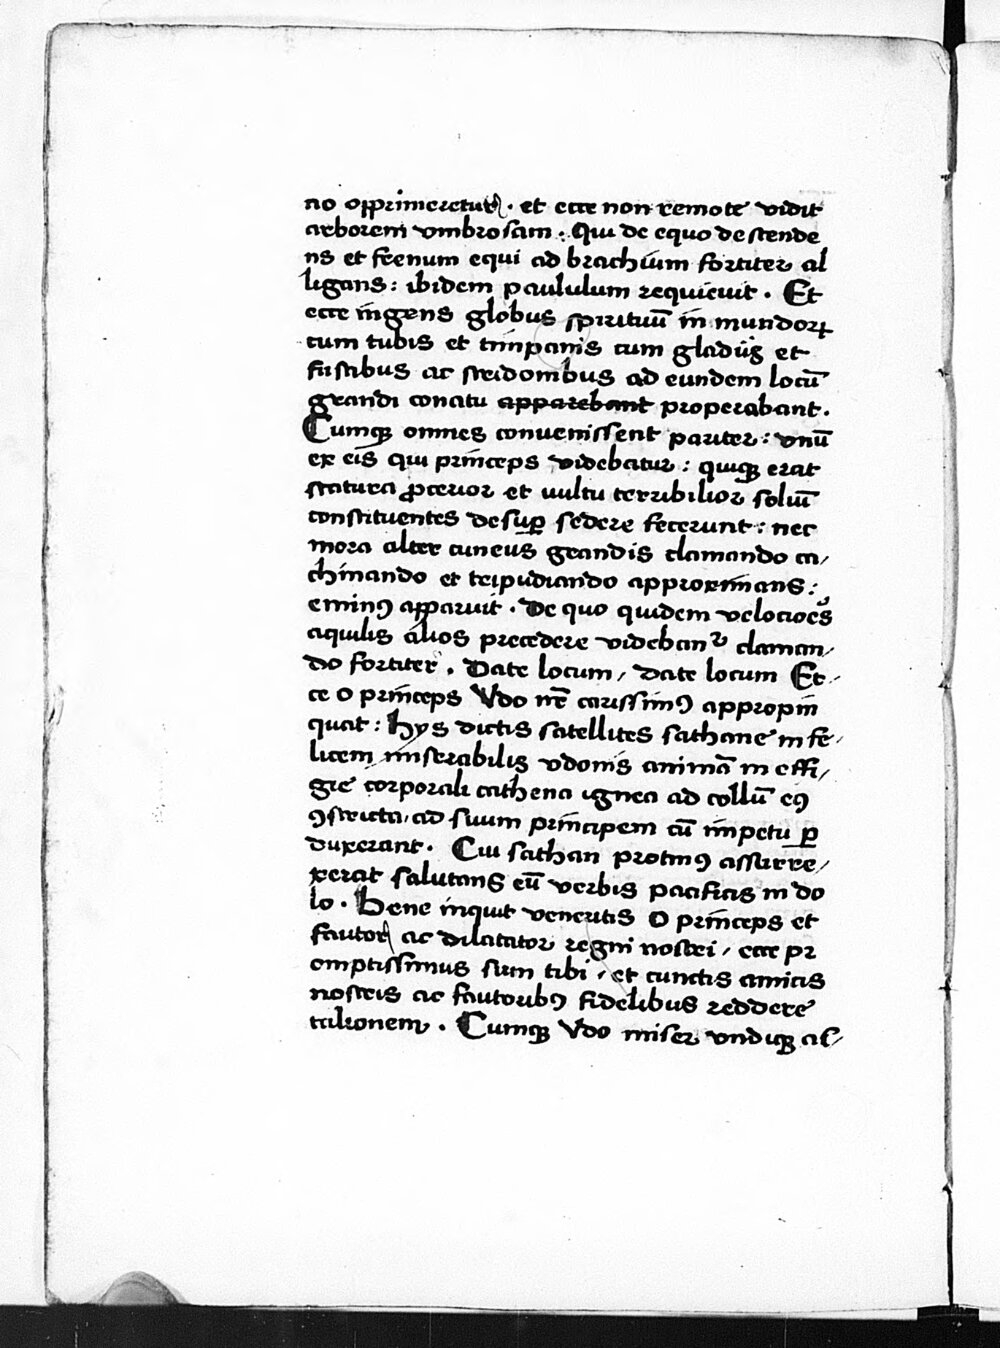 no opprimeretur . et ecce non remote vidit
arborem vmbrosam . Qui de equo descende
ns et frenum equi ad brachium fortiter al
ligans : ibidem paululum requieuit . Et
ecce ingens globus spirituū in mundorꝝ
cum tubis et timpanis cum gladijs et
fustibus ac stridoribus ad eundem locū
grandi conatu apparebant properabant .
Cumqꝫ omnes conuenissent pariter : vnū
ex eis qui princeps videbatur : quiqꝫ erat
statura ꝓcerior et uultu terribilior soliū
constituentes desuꝑ sedere fecerunt : nec
mora alter cuneus grandis clamando ca/
chinando et tripudiando approximans :
eminꝰ apparuit . De quo quidem velociores
aquilis alios precedere videbant᷑ claman/
do fortiter . Date locum / date locum Et/
ce o princeps Vdo nr̄ carissimꝰ appropin
quat : hys dictis satellites sathane infe/
licem miserabilis vdonis animā in effi/
gie corporali cathena ignea ad collū eꝰ
ꝯstricta ad suum principem cū impetu ꝑ
duxerant . Cui sathan protinꝰ assurre/
xerat salutans eū verbis pacificis in do
lo . Bene inquit veneritis o princeps et
fautor ac dilatator regni nostri / ecce pr
omptissimus sum tibi / et cunctis amicis
nostris ac fautoribꝰ fidelibus reddere
talionem . Cumqꝫ Vdo miser vndiqꝫ as/